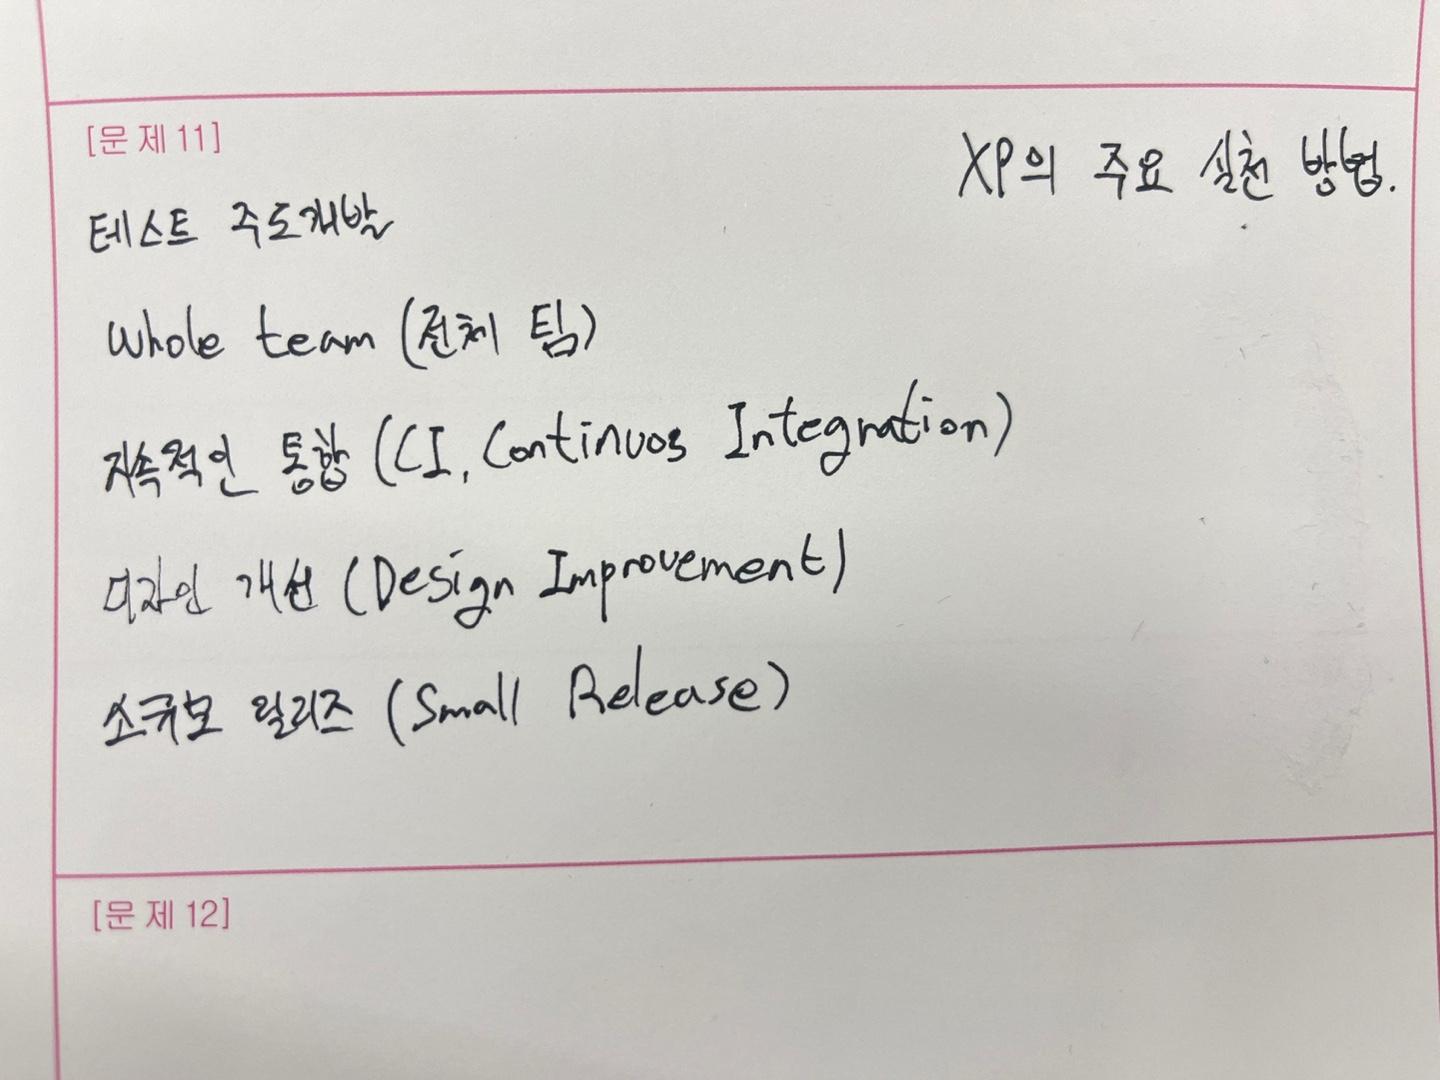 [문제 11]
XP의 주요 실천 방법.
테스트 주도개발
Whole team (전체 팀)
지속적인 통합 (CI, Continuos Integration)
디자인 개선 (Design Improvement)
소규모 릴리즈 (Small Release)
[문제 12]